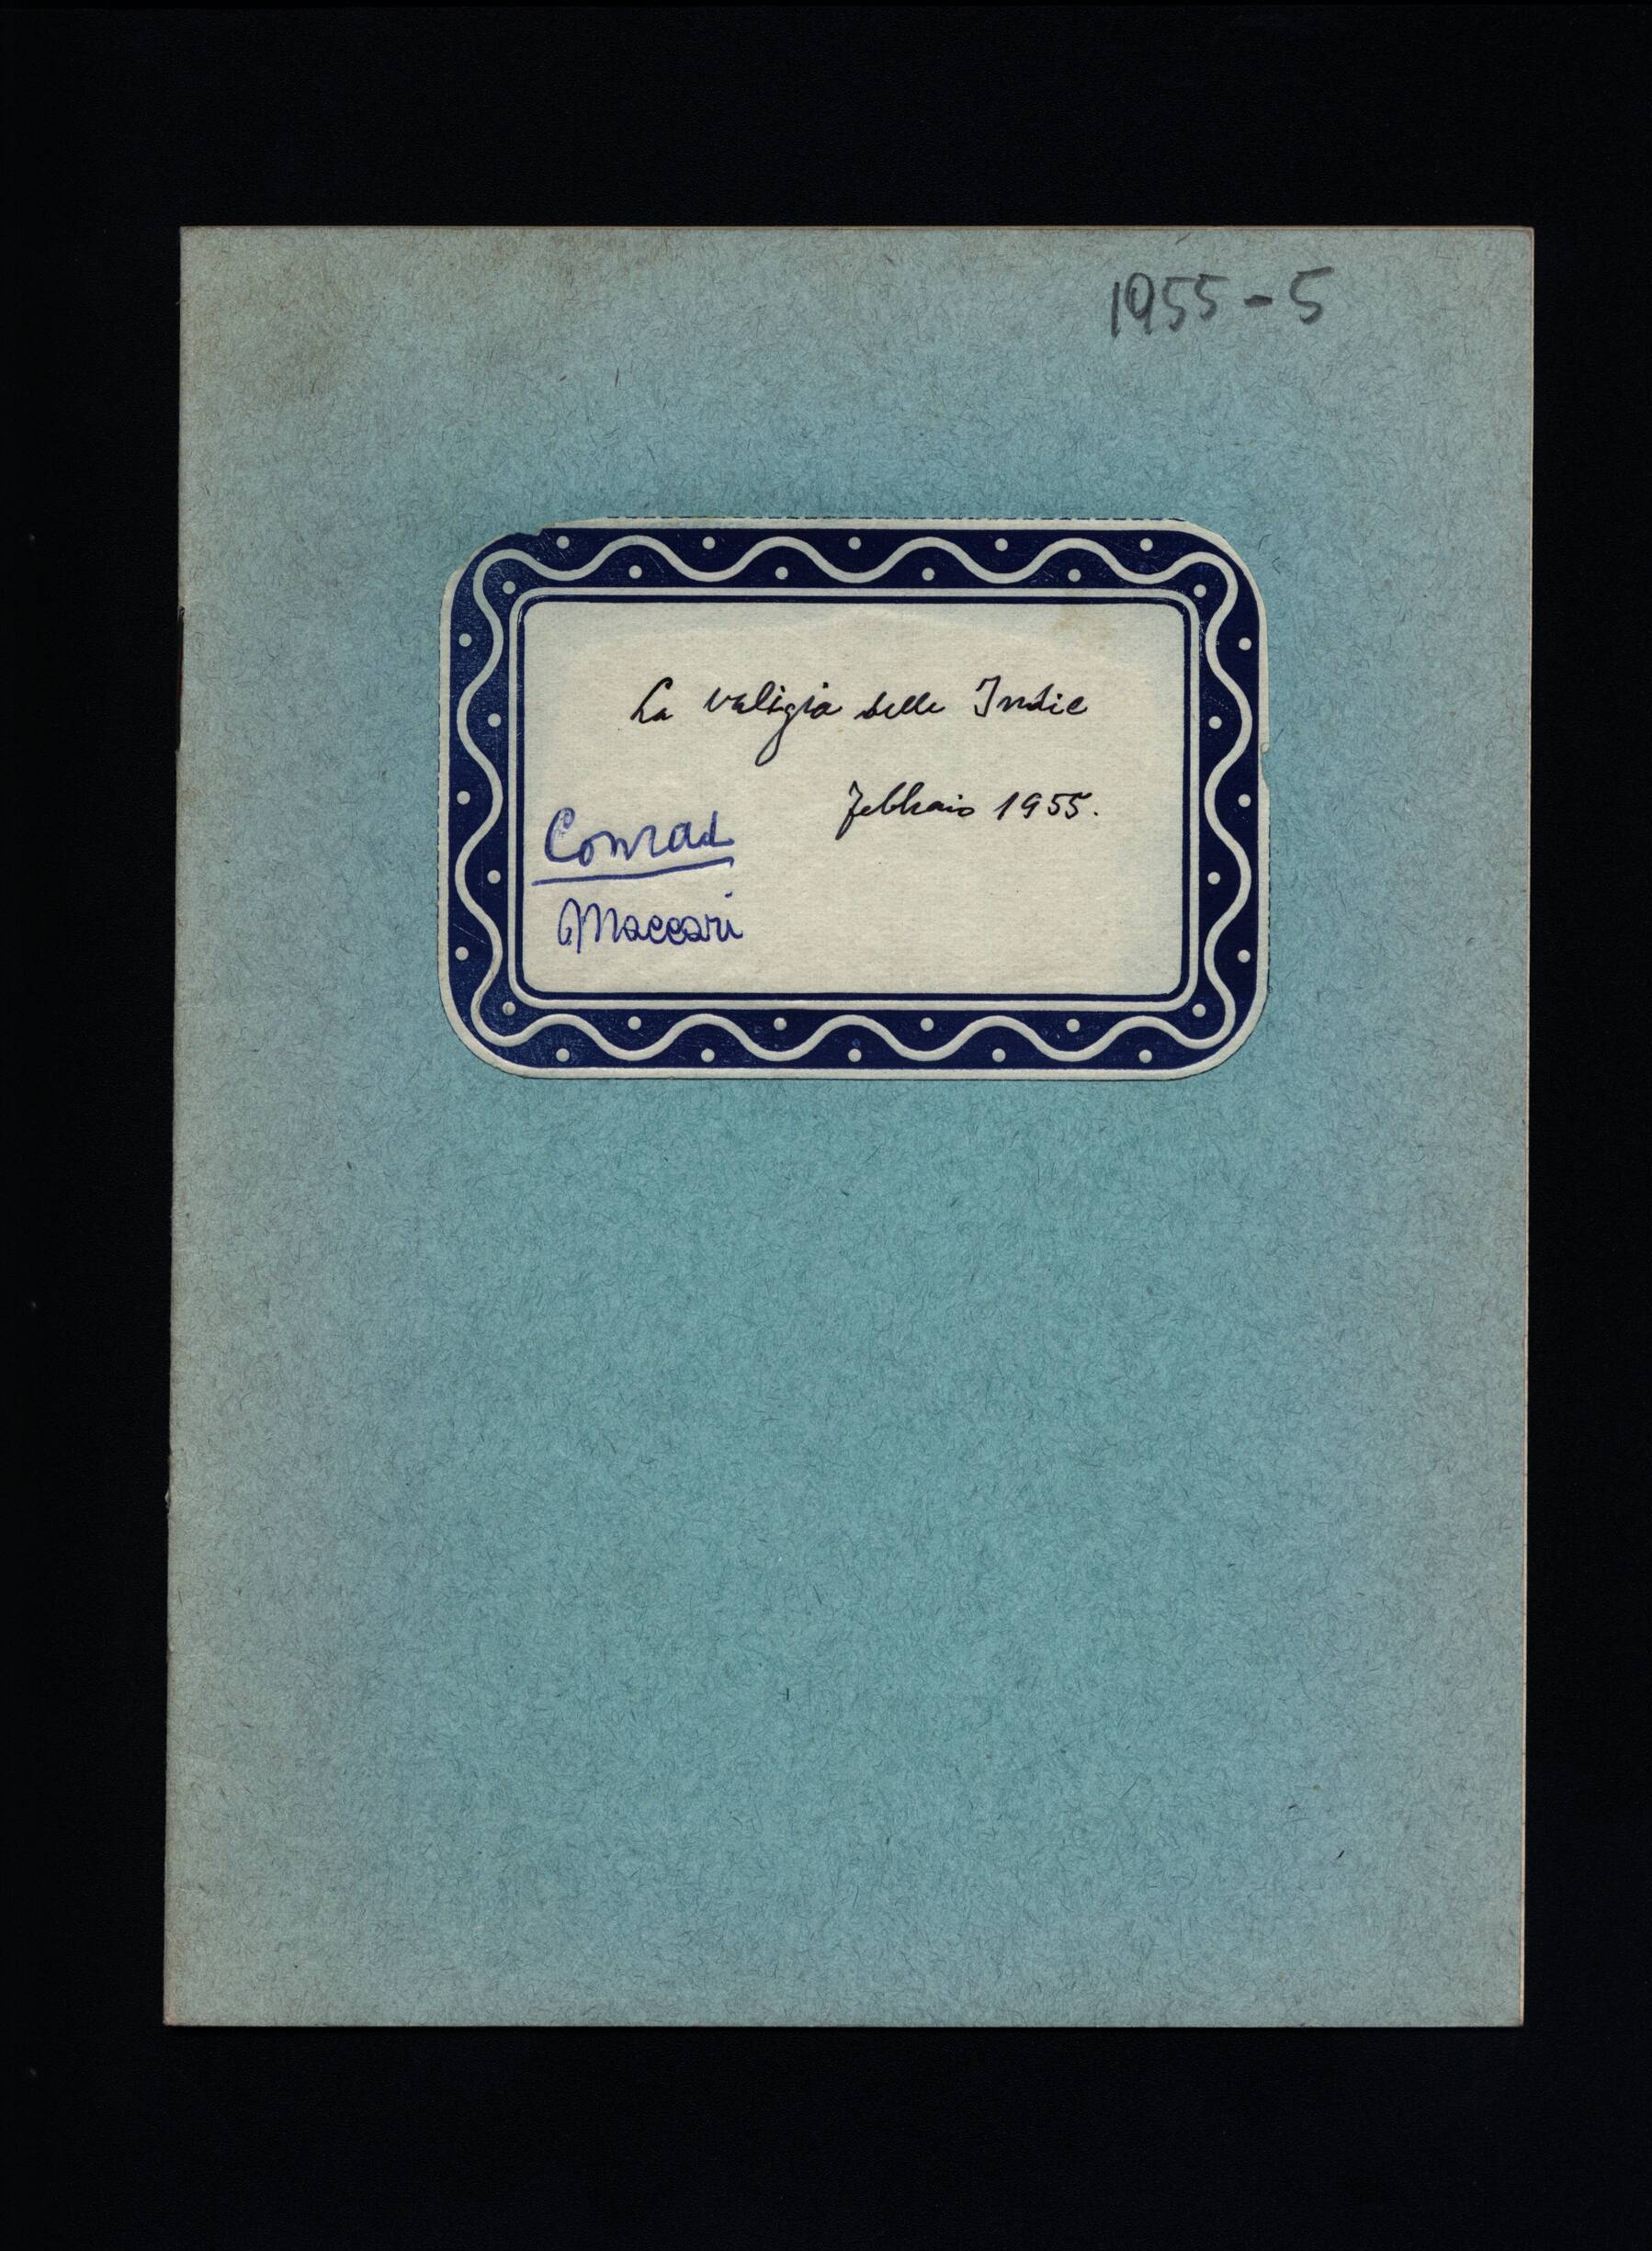 1955-5
La valigia delle Indie
febbraio 1955.
Conrad
Maccari